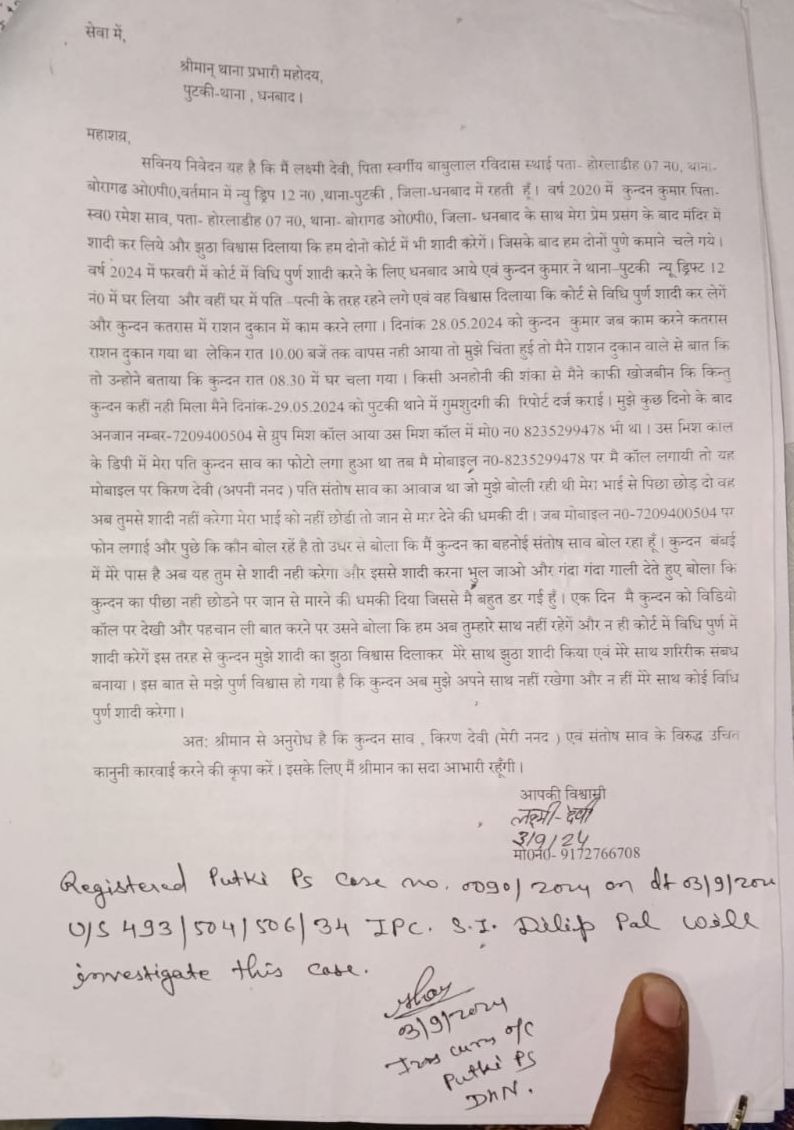 सेवा में,
श्रीमान् थाना प्रभारी महोदय,
पुटकी-थाना , धनबाद।
महाशय,
सविनय निवेदन यह है कि मैं लक्ष्मी देवी, पिता स्वर्गीय बाबुलाल रविदास स्थाई पता- होरलाडीह 07 न0, थाना-
बोरागढ ओ0पी0,वर्तमान में न्यु ड्रिप 12 न0 ,थाना-पुटकी , जिला-धनबाद में रहती हूँ। वर्ष 2020 में कुन्दन कुमार पिता-
स्व0 रमेश साव, पता- होरलाडीह 07 न0, थाना- बोरागढ ओ0पी0, जिला- धनबाद के साथ मेरा प्रेम प्रसंग के बाद मंदिर में
शादी कर लिये और झुठा विश्वास दिलाया कि हम दोनो कोर्ट में भी शादी करेगें। जिसके बाद हम दोनों पुणे कमाने चले गये।
वर्ष 2024 में फरवरी में कोर्ट में विधि पुर्ण शादी करने के लिए धनबाद आये एवं कुन्दन कुमार ने थाना-पुटकी न्यू ड्रिफ्ट 12
नं0 में घर लिया और वहीं घर में पति –पत्नी के तरह रहने लगे एवं वह विश्वास दिलाया कि कोर्ट से विधि पुर्ण शादी कर लेगें
और कुन्दन कतरास में राशन दुकान में काम करने लगा। दिनांक 28.05.2024 को कुन्दन कुमार जब काम करने कतरास
राशन दुकान गया था लेकिन रात 10.00 बजें तक वापस नही आया तो मुझे चिंता हुई तो मैने राशन दुकान वाले से बात कि
तो उन्होने बताया कि कुन्दन रात 08.30 में घर चला गया। किसी अनहोनी की शंका से मैने काफी खोजबीन कि किन्तु
कुन्दन कहीं नही मिला मैने दिनांक-29.05.2024 को पुटकी थाने में गुमशुदगी की रिपोर्ट दर्ज कराई। मुझे कुछ दिनो के बाद
अनजान नम्बर-7209400504 से ग्रुप मिश कॉल आया उस मिश कॉल में मो0 न0 8235299478 भी था। उस मिश कॉल
के डिपी में मेरा पति कुन्दन साव का फोटो लगा हुआ था तब मै मोबाइल न0-8235299478 पर मै कॉल लगायी तो यह
मोबाइल पर किरण देवी (अपनी ननद ) पति संतोष साव का आवाज था जो मुझे बोली रही थी मेरा भाई से पिछा छोड़ दो वह
अब तुमसे शादी नहीं करेगा मेरा भाई को नहीं छोडी तो जान से मार देने की धमकी दी। जब मोबाइल न0-7209400504 पर
फोन लगाई और पुछे कि कौन बोल रहें है तो उधर से बोला कि मैं कुन्दन का बहनोई संतोष साव बोल रहा हूँ। कुन्दन बंबई
में मेरे पास है अब यह तुम से शादी नही करेगा और इससे शादी करना भुल जाओ और गंदा गंदा गाली देते हुए बोला कि
कुन्दन का पीछा नही छोडने पर जान से मारने की धमकी दिया जिससे मै बहुत डर गई हुँ। एक दिन मै कुन्दन को विडियो
कॉल पर देखी और पहचान ली बात करने पर उसने बोला कि हम अब तुम्हारे साथ नहीं रहेगें और न ही कोर्ट में विधि पुर्ण में
शादी करेगें इस तरह से कुन्दन मुझे शादी का झुठा विश्वास दिलाकर मेरे साथ झुठा शादी किया एवं मेरे साथ शरिरीक संबध
बनाया। इस बात से मझे पुर्ण विश्वास हो गया है कि कुन्दन अब मुझे अपने साथ नहीं रखेगा और न हीं मेरे साथ कोई विधि
पुर्ण शादी करेगा।
अतः श्रीमान से अनुरोध है कि कुन्दन साव , किरण देवी (मेरी ननद ) एवं संतोष साव के विरुद्ध उचित
कानुनी कारवाई करने की कृपा करें। इसके लिए मैं श्रीमान का सदा आभारी रहूँगी।
आपकी विश्वासी
लक्ष्मी-देवी
3/9/24
मो0न0- 9172766708
Registered Putki Ps Case no. 0090/2024 on dt 03/9/2024
U/S 493/504/506/34 IPC. S.I. Dilip Pal will
investigate this case.
03/9/2024
O/C
Putki PS
DhN.